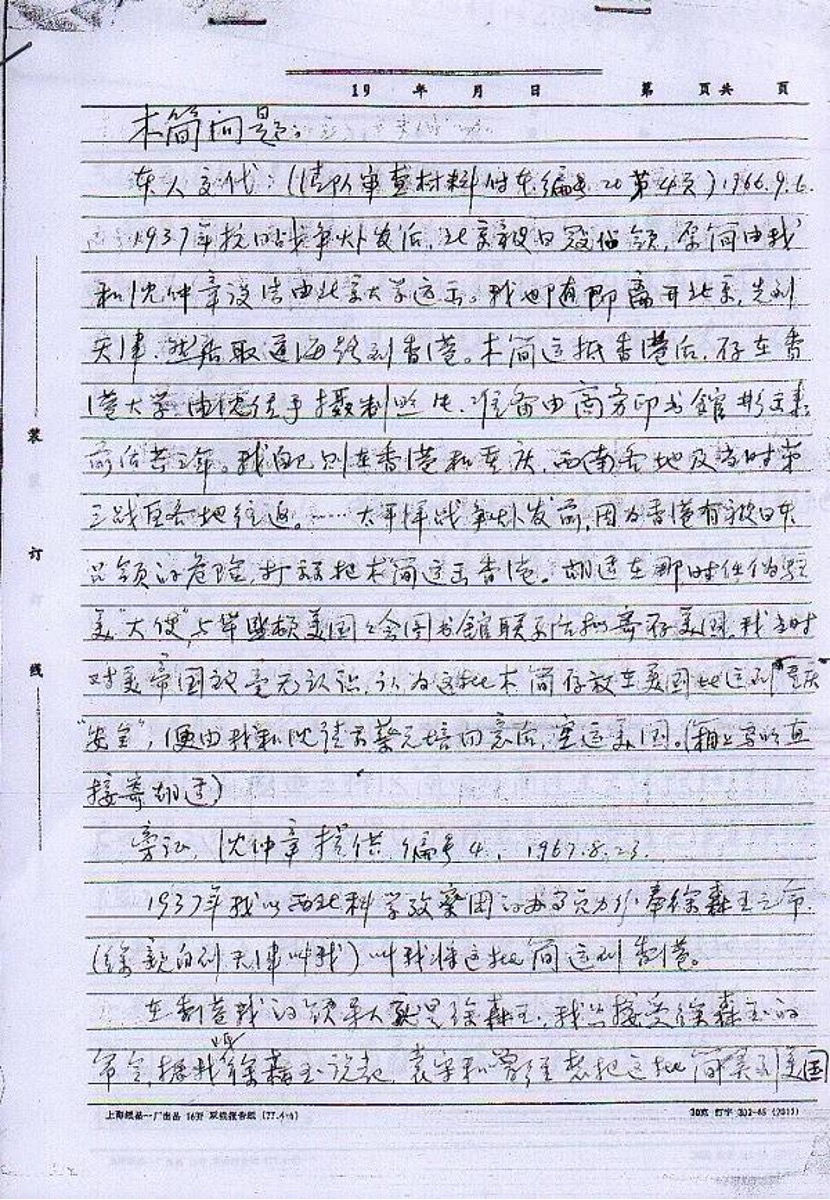 19 年 月 日 第 页共 页
木简问题：
本人交代：（清队审查材料付本编号20第4页）1966.9.6.
1937年抗日战争爆发后，北京被日寇占领，原简由我
和沈仲章设法由北京大学运出。我也随即离开北京，先到
天津，然后取道海路到香港。木简运抵香港后，存在香
港大学，由沈经手摄制照片，准备由商务印书馆影印
前后共三年。我自己则在香港和重庆，西南各地及当时第
三战区各地往返。……太平洋战争爆发前，因为香港有被日本
占领的危险，打算把木简运出香港。胡适在那时任伪驻
美“大使”，与华盛顿美国国会图书馆联系后拟寄存美国，我当时
对美帝国主义毫无认识，认为这批木简存放在美国比运到重庆
“安全”，便由我和沈征求蔡元培同意后，运美国。（箱上写明直
接寄胡适）
旁证，沈仲章提供 编号4，1967.8.23.
1937年我以西北科学考察团的干事员身份奉徐森玉之命，
（徐亲自到天津叫我）叫我将这批简运到香港。
在香港我的领导人就是徐森玉，我只接受徐森玉的
命令，据我听徐森玉说起，袁守和曾经想把这批简弄到美国
装
订
线
上海纸品一厂出品 16开 双线报告纸 (77.4)
30克 打字 302—45 (2017)